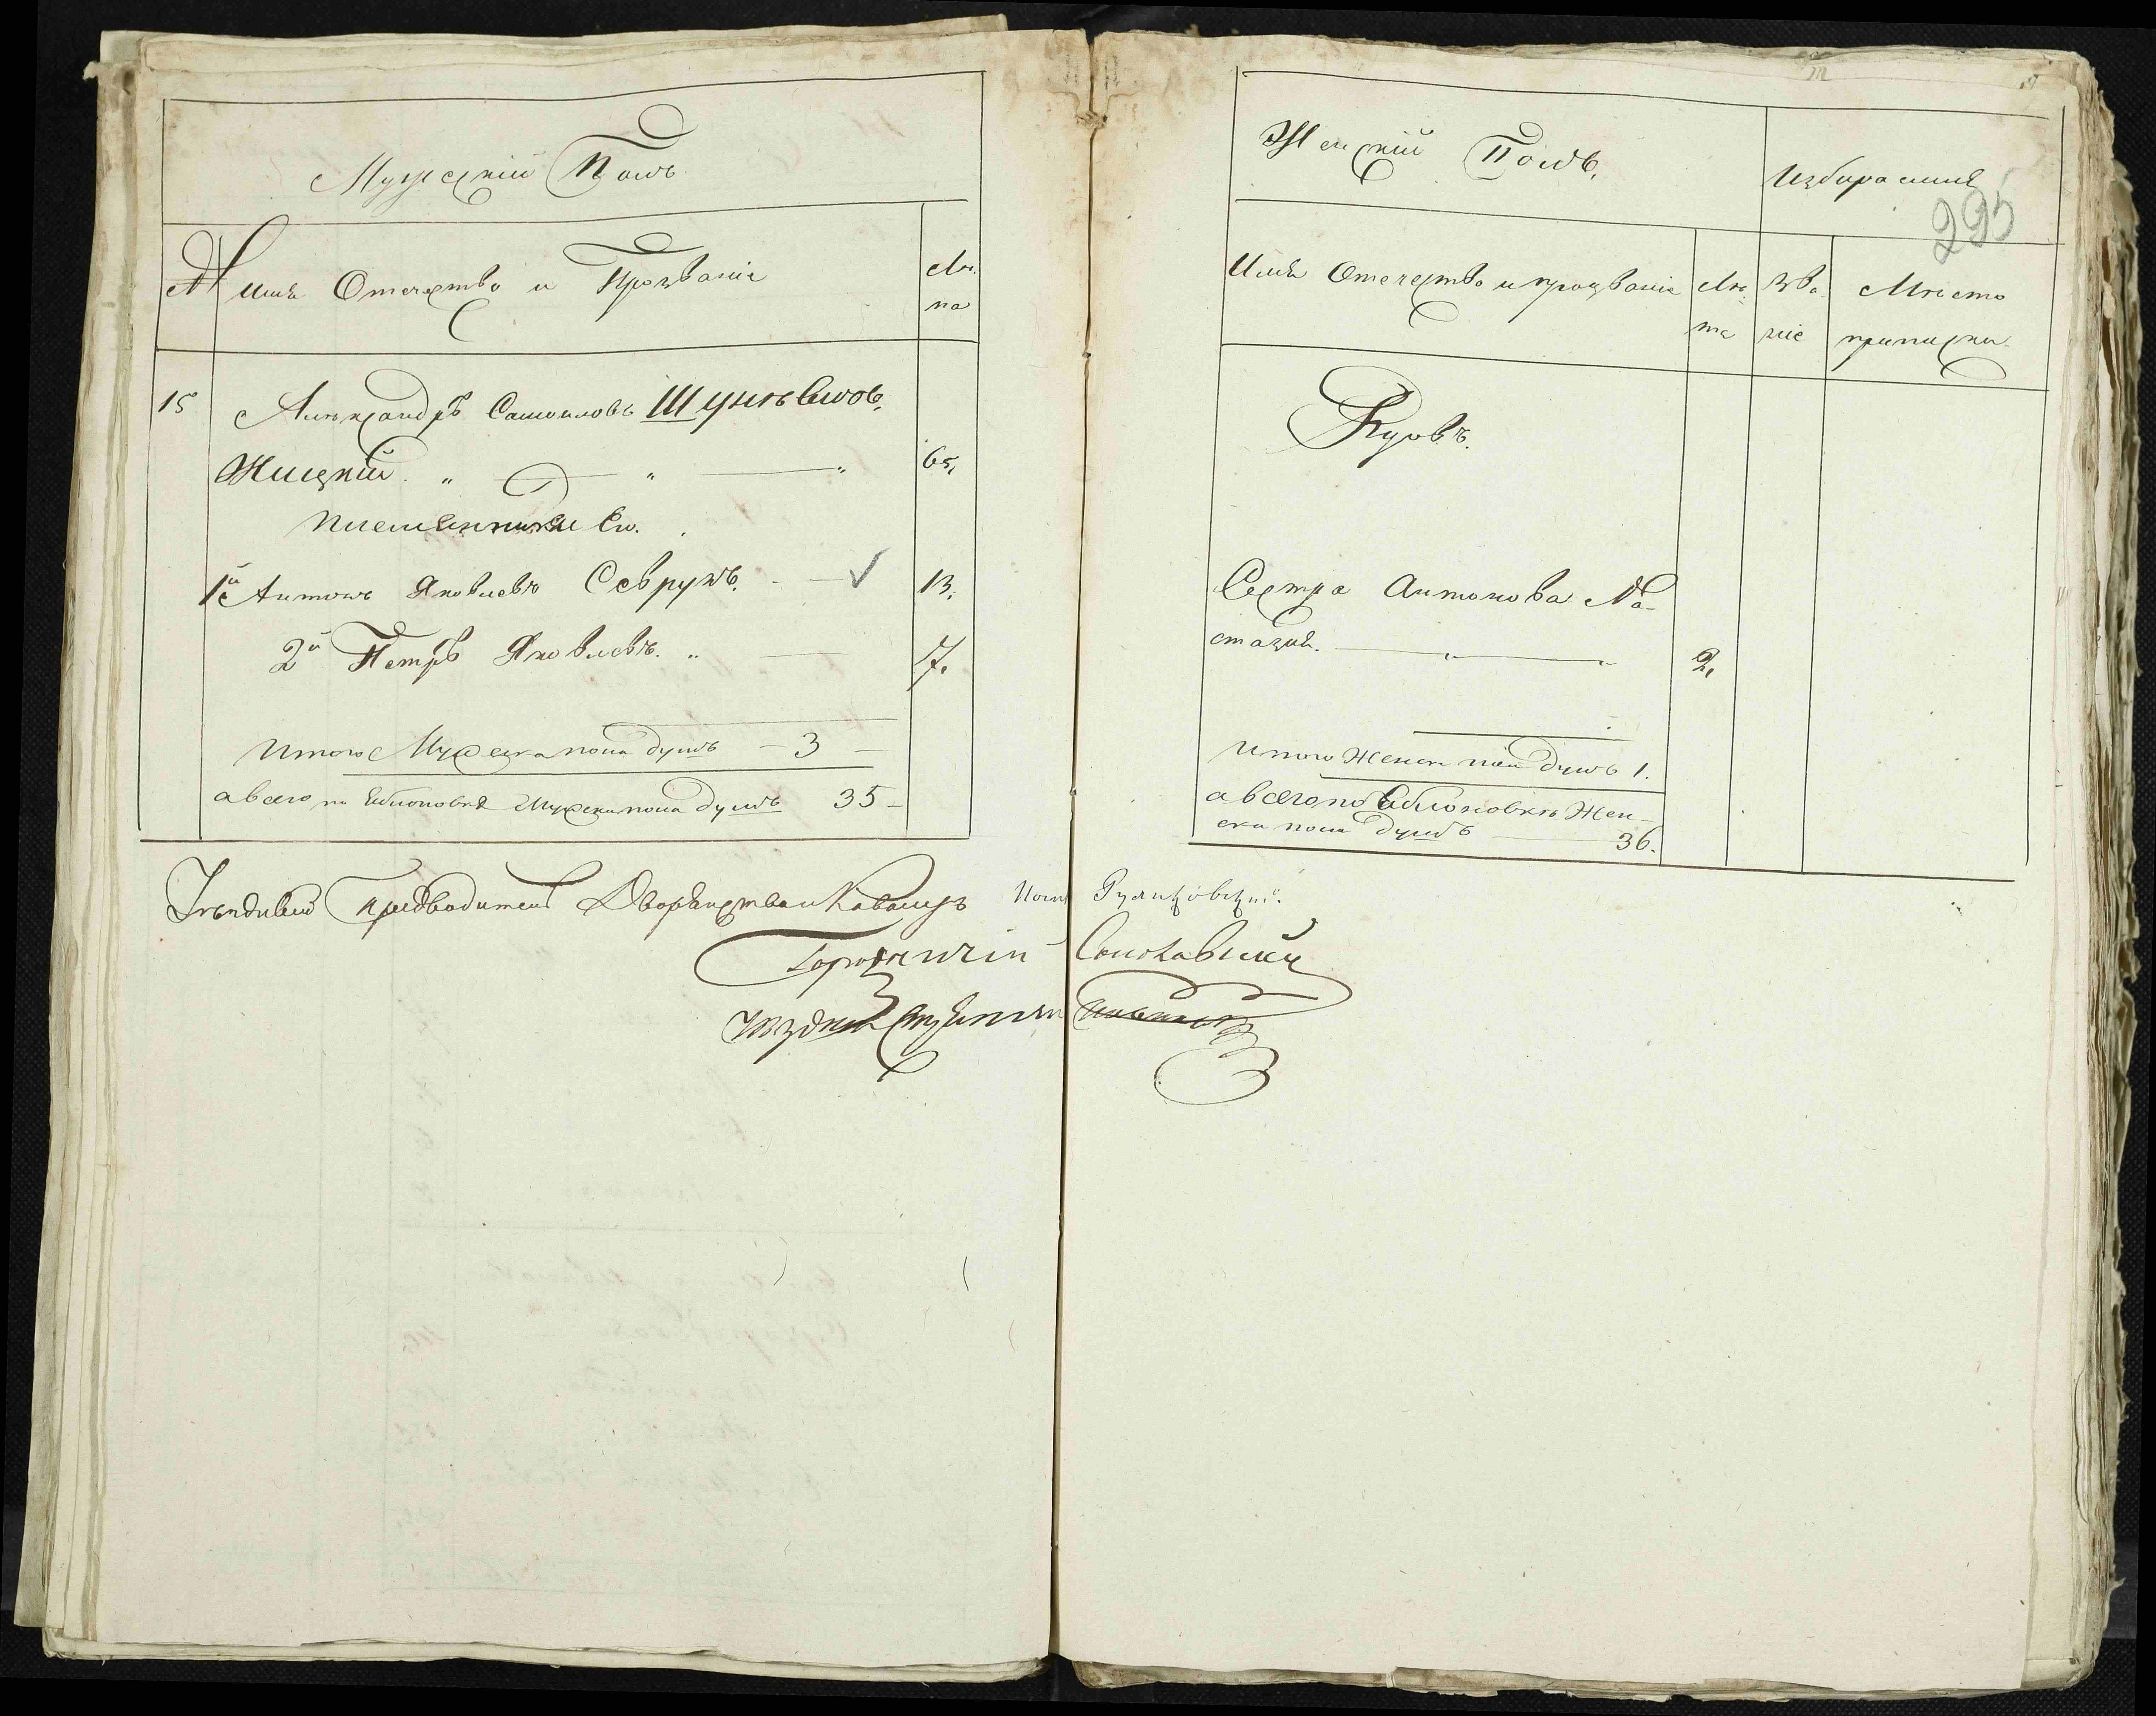 Мужескій Полъ
№
Имя Отечество и Прозваніе
Лѣ
та
15
Александръ Самойловъ Шумовичъ
Жицкій
65.
племянники Ею.
1й Антонъ Яковлевъ Севрукъ.
13.
2й Петръ Яковлевъ.
7.
Итого Мужеска пола душъ — 3 —
а всего по Яблоновкѣ Мужеска пола душъ 35 —
Женскій Полъ.
Избираемыя
295
Имя Отечество и прозваніе
Лѣ
та
Зва
ніе
Мѣсто
приписки.
Сестра Антонова На-
стазия.
2.
Итого Женска пола душъ 1.
а всего по Яблоновкѣ Жен-
ска пола душъ 36.
Уѣздный Предводитель Дворянства и Кавалеръ
Городничій